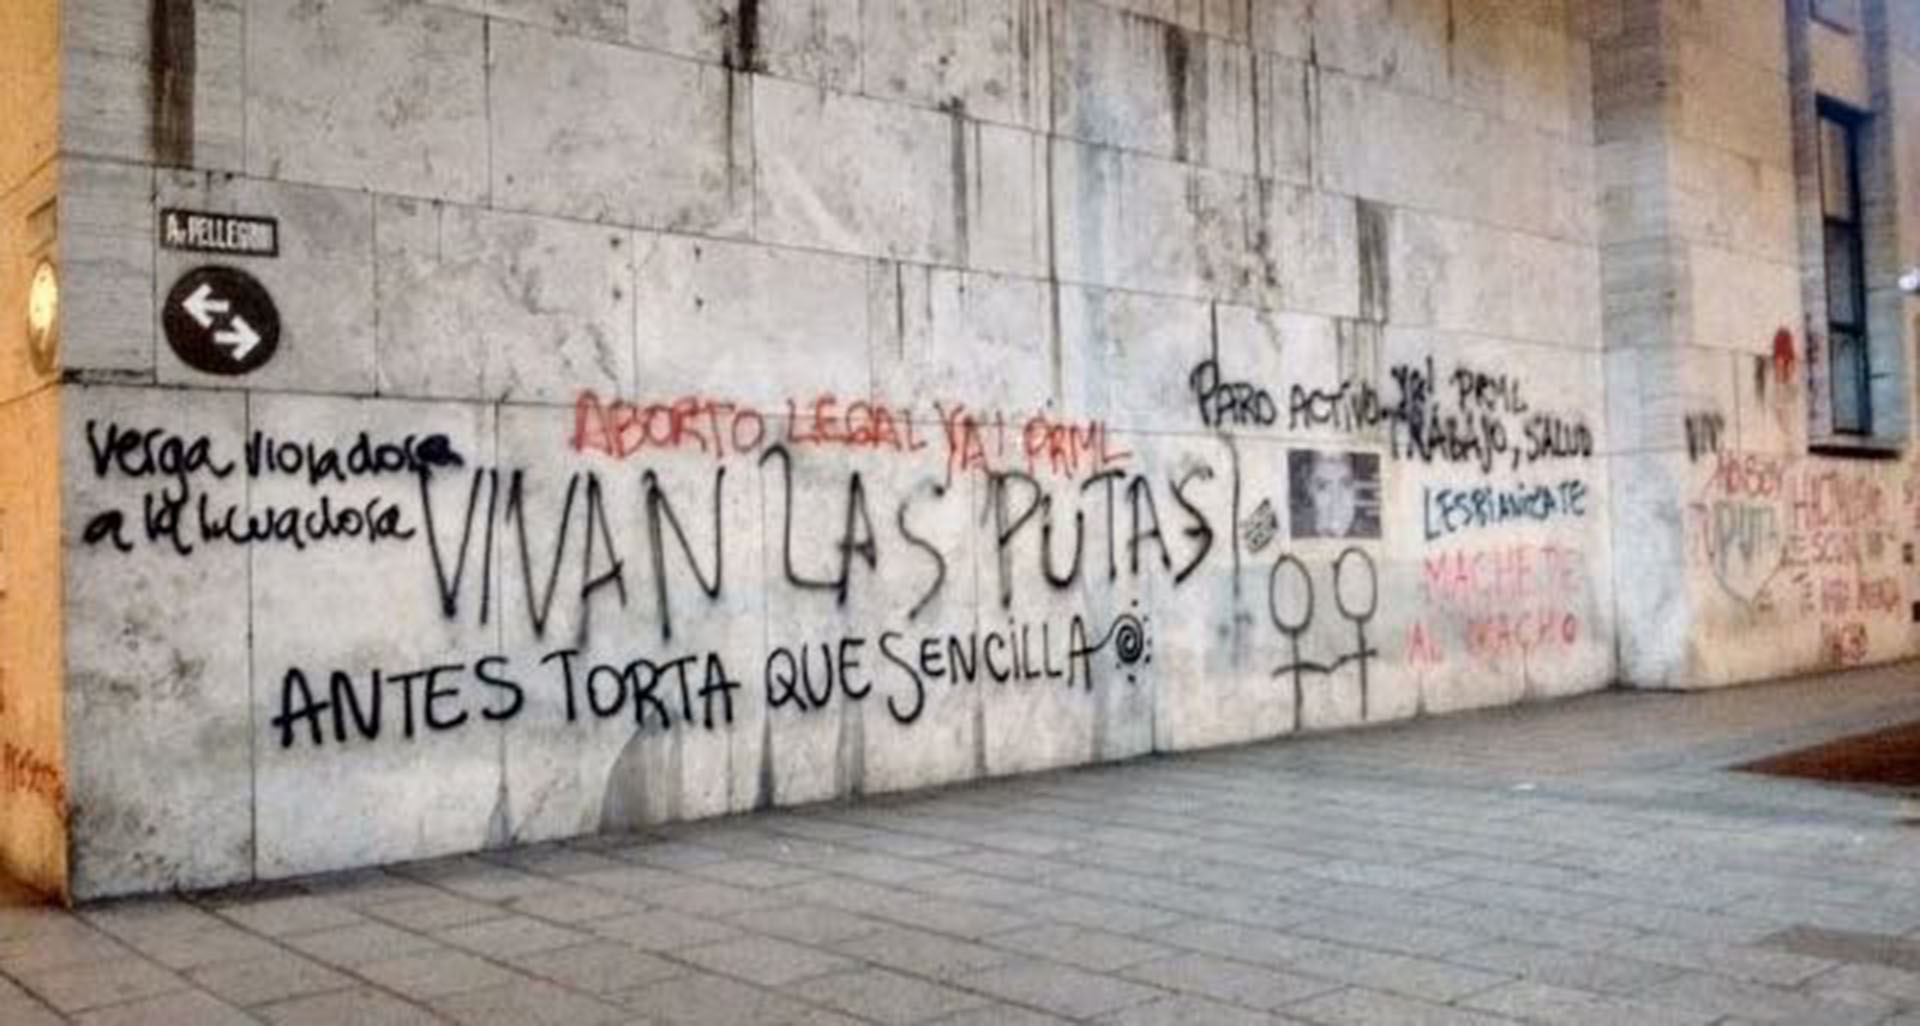 Av PELLEGRINI
Verga violadora
a la licuadora
ABORTO LEGAL YA! PRML
VIVAN LAS PUTAS
ANTES TORTA QUE SENCILLA
PARO ACTIVO YA! PRML
TRABAJO, SALUD
LESBIANIZATE
MACHETE
AL MACHO
VIV